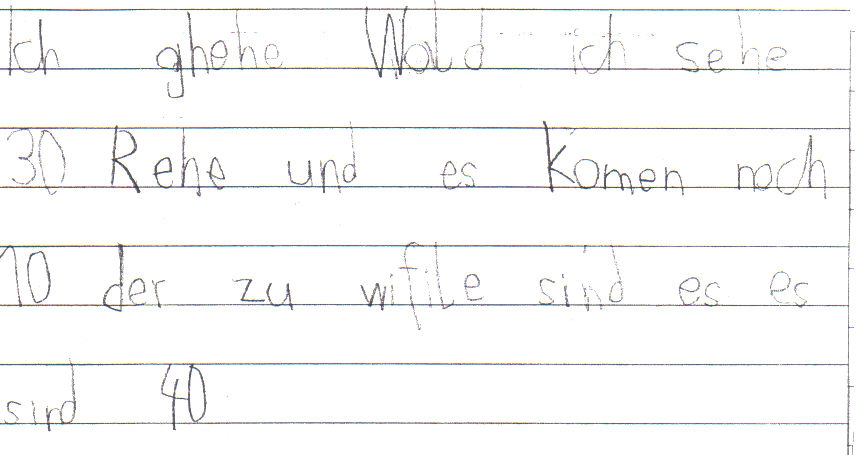 Ich ghehe Wald ich sehe
30 Rehe und es Komen noch
10 der zu wifile sind es es
sind 40